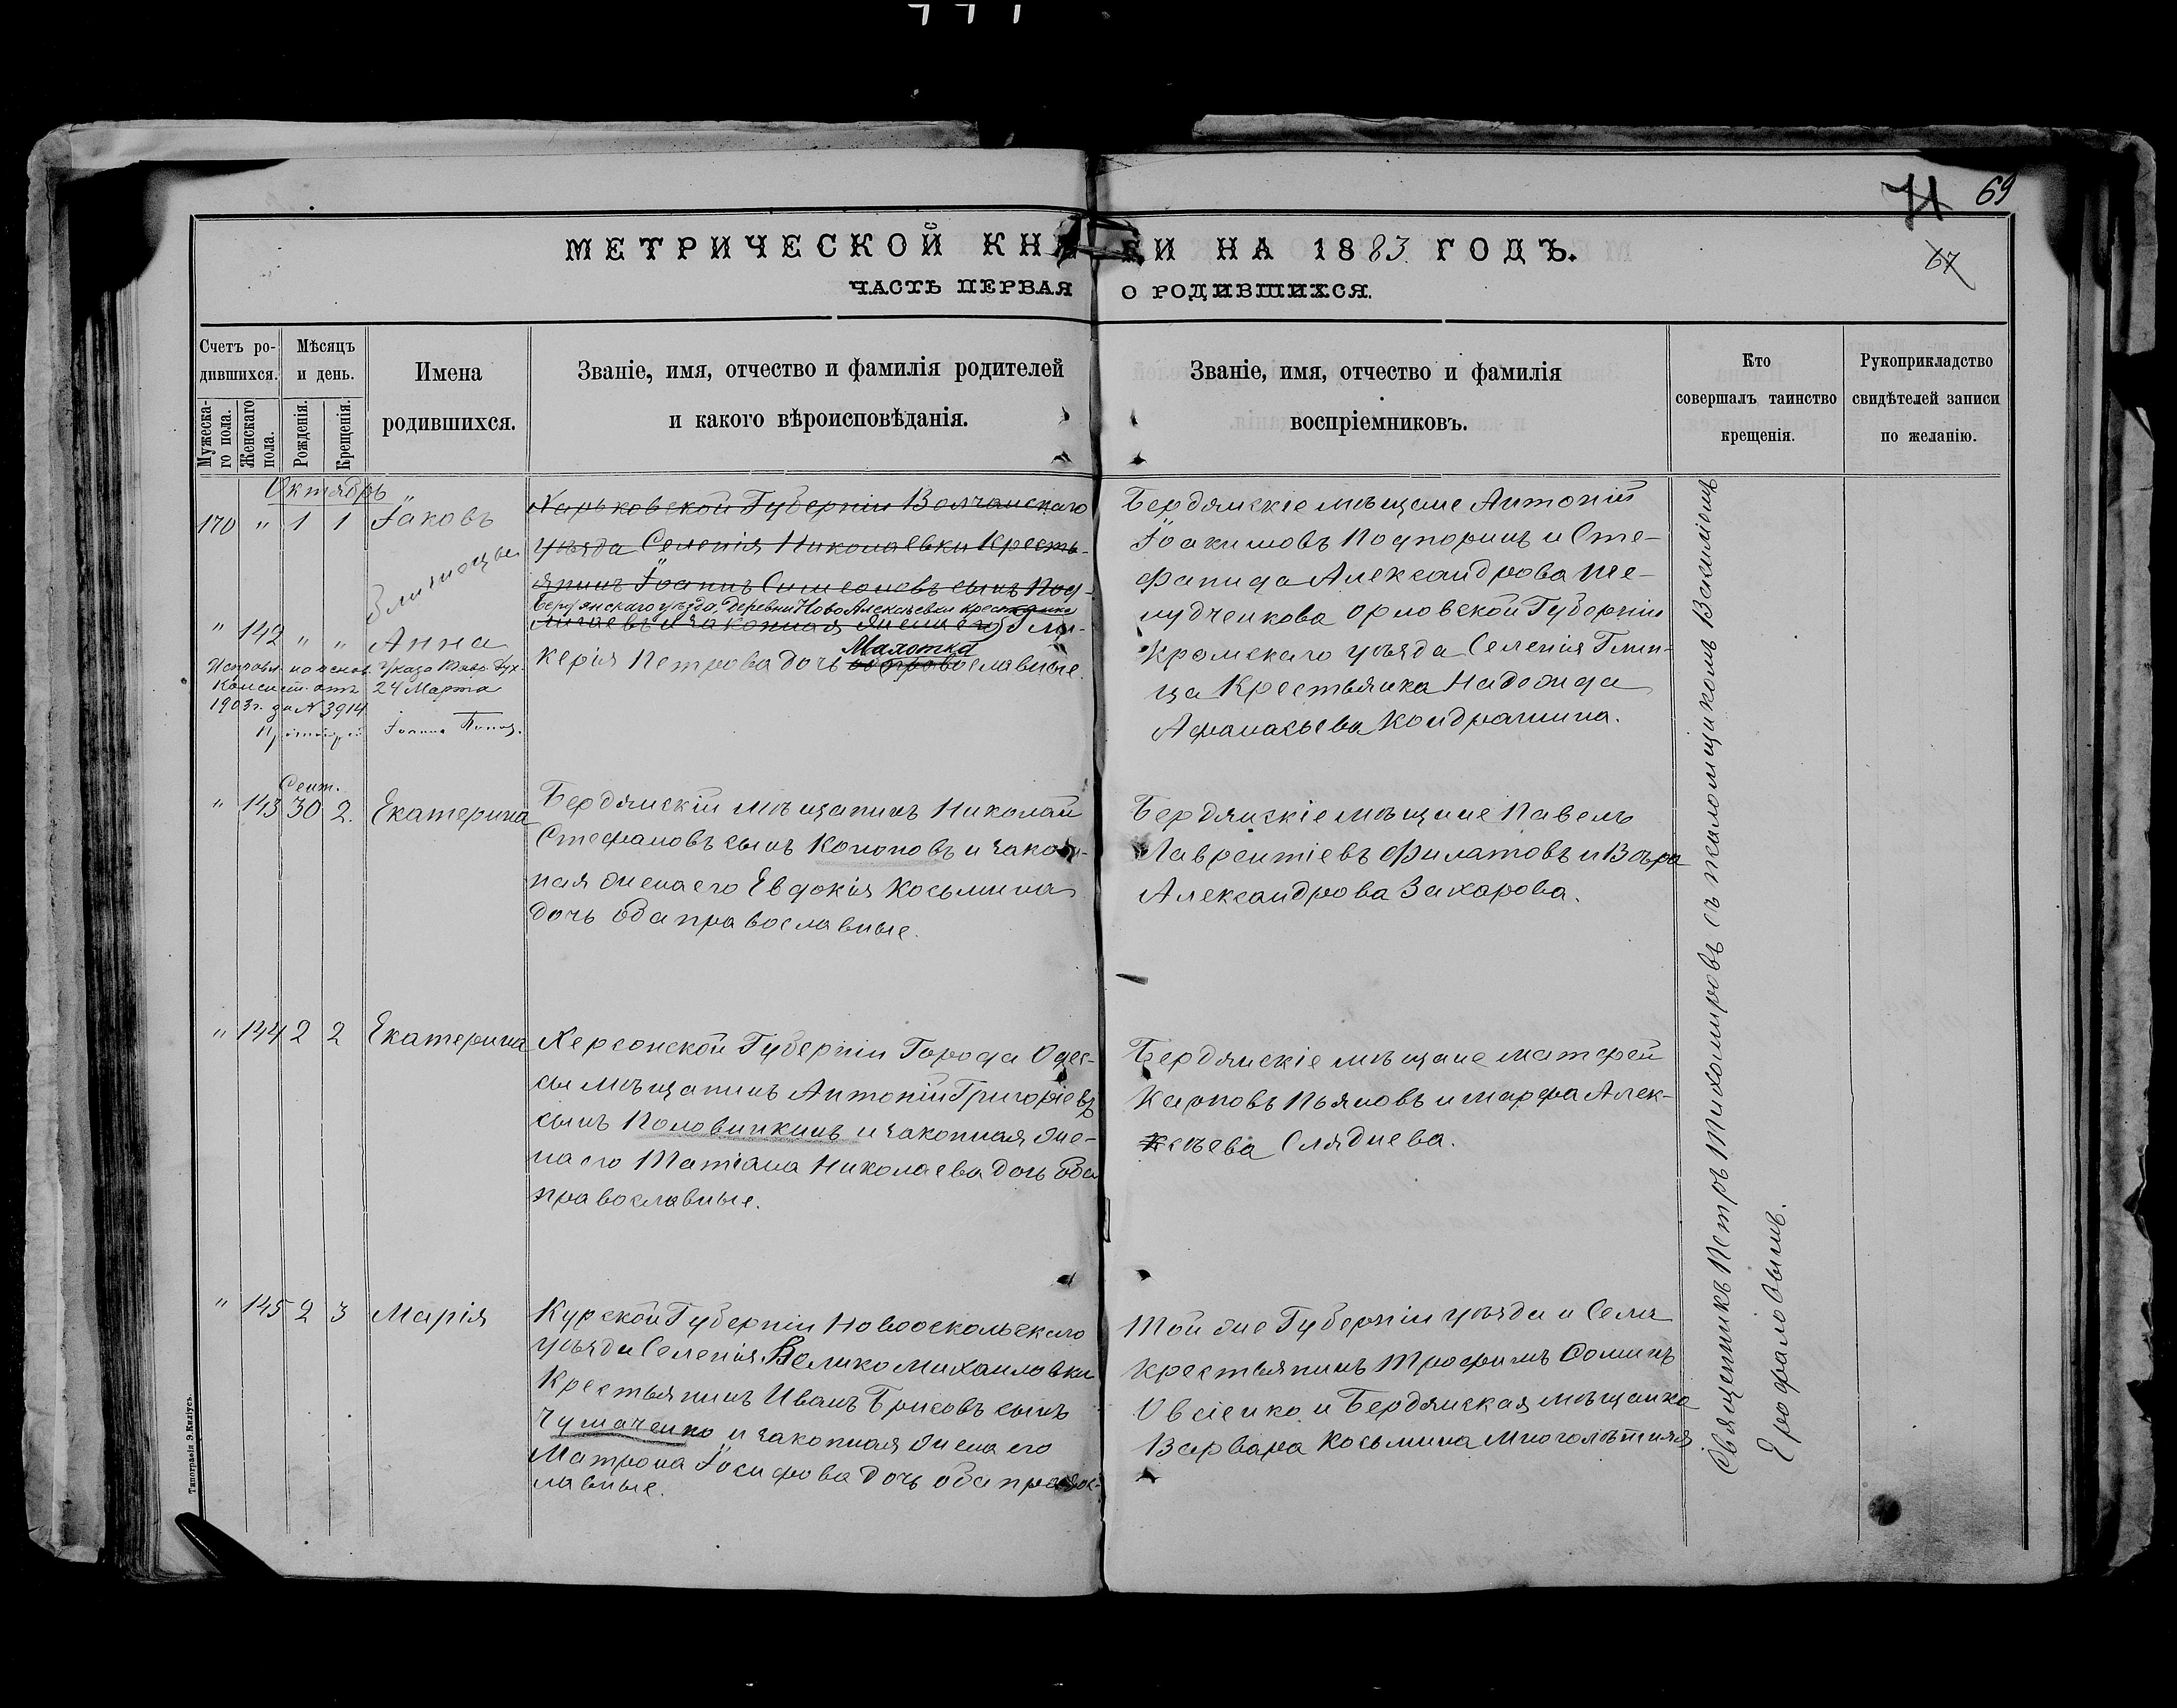 71 69
МЕТРИЧЕСКОЙ КНИГИ НА 1883 ГОДЪ.
67
ЧАСТЬ ПЕРВАЯ О РОДИВШИХСЯ.
Счетъ ро-
дившихся.
Мужеска-
го пола.
Женскаго
пола.
Мѣсяцъ
и день.
Рожденія.
Крещенія.
Имена
родившихся.
Званіе, имя, отчество и фамилія родителей
и какого вѣроисповѣданія.
Званіе, имя, отчество и фамилія
воспріемниковъ.
Кто
совершалъ таинство
крещенія.
Рукоприкладство
свидѣтелей записи
по желанію.
Октябрь
170 " 1 1 Іаковъ
Близнецы
" 142 " " Анна
Исправл. на основ. Указа Тавр. Дух.
Консист. отъ 24 Марта
1903 г. за № 3914
Харьковской Губерніи Волчанскаго
уѣзда Селенія Николаевки Кресть-
янинъ Іоаннъ Симеоновъ сынъ Под-
Бердянскаго уѣзда, деревни Ново Алексѣевки крестьянка
законная жена его Гли-
Малотка
керія Петрова дочь православные.
Бердянскіе мѣщане Антоній
Іоакимовъ Подпоринъ и Сте-
фанида Александрова Ше-
лудченкова Орловской Губерніи
Кромскаго уѣзда Селенія Гнип-
ца Крестьянка Надежда
Афанасьева Кондрашина.
Сент.
" 143 30 2. Екатерина
Бердянскій мѣщанинъ Николай
Стефановъ сынъ Кононовъ и закон-
ная жена его Евдокія Косьмина
дочь оба православные.
Бердянскіе мѣщане Павелъ
Лаврентіевъ Филатовъ и Вѣра
Александрова Захарова.
" 144 2 2 Екатерина
Херсонской Губерніи Города Одес-
сы мѣщанинъ Антоній Григоріевъ
сынъ Половинкинъ и законная же-
на его Татіана Николаева дочь оба
православные.
Бердянскіе мѣщане Матфей
Карповъ Пьяновъ и Марфа Алек-
сѣева Сляднева.
" 145 2 3 Марія
Курской Губерніи Новооскольскаго
уѣзда Селенія Велико Михаиловки
Крестьянинъ Иванъ Борисовъ сынъ
Чумаченко и законная жена его
Матрона Іосифова дочь оба правос-
лавные.
Той же Губерніи уѣзда и Села
Крестьянинъ Трофимъ Фоминъ
Овсіенко и Бердянская мѣщанка
Варвара Косьмина Многолѣтняя
Священникъ Петръ Тихомировъ съ псаломщикомъ Василіемъ
Ерофаловымъ.
Типографія Э. Килліусъ